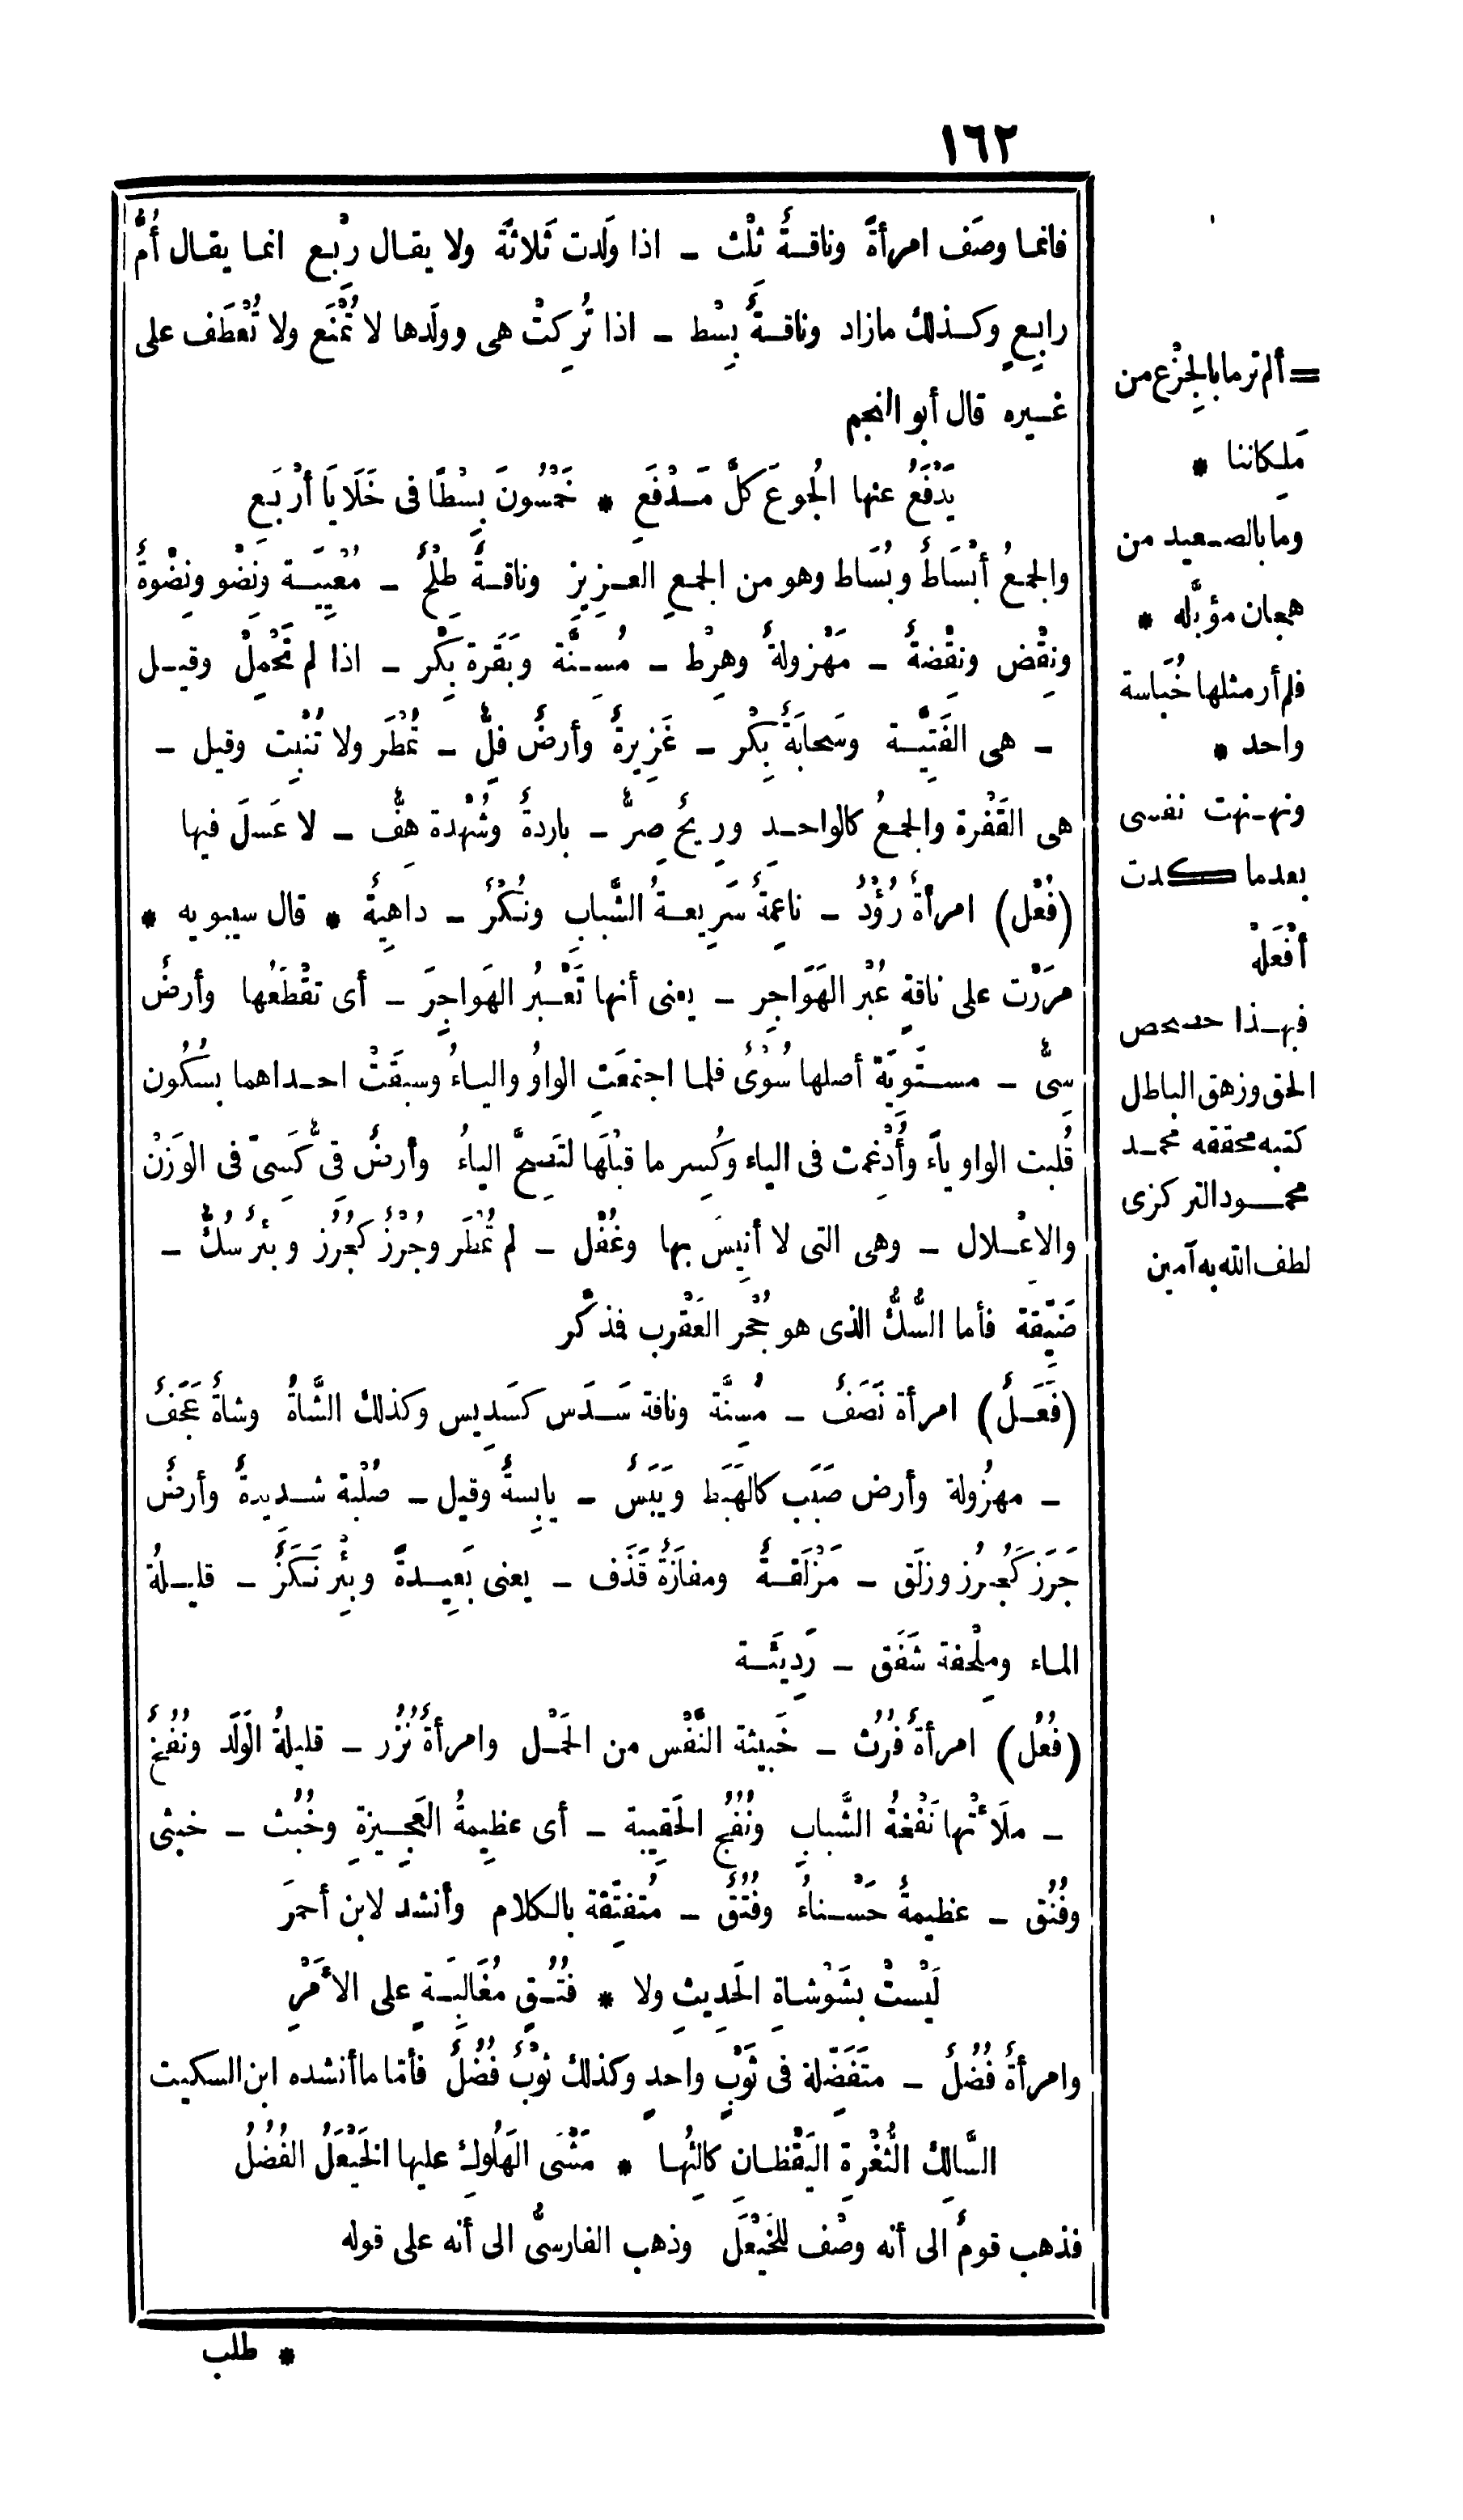 ١٦٢
فانما وصَف امرأةً وناقـةٌ ثِلْث ـ اذا وَلَدت ثَلاثَةً ولا يقـال رِبْع انمـا يقـال أُمُّ
رابِـعٍ وكـذلك مازاد وناقـةٌ بِسْط ـ اذا تُرِكتْ هى وولَدها لا تُمْنَع ولا تُعْطَف على
غـيره قال أبو النجم
يَدْفَعُ عنها الجُوعَ كلَّ مَـدْفَعِ * خَمْسُونَ بِسْطًا فى خَلَايَا أَرْبَعِ
والجمعُ أبْسَاطٌ وبُسَاط وهو من الجمعِ العـزِيزِ وناقـةٌ طِلْحٌ ـ مُعْيِيَـة ونِضْو ونِضْوةٌ
ونِقْض ونِقْضةٌ ـ مَهْزولةٌ وهِرْط ـ مُسِـنَّة وبَقَرة بِكْر ـ اذا لم تَحْمِلْ وقيـل
ـ هى الفَتِيَّـة وسَحابَةٌ بِكْر ـ غَزِيرةٌ وأرضٌ فِلٌّ ـ تُمْطَر ولا تُنْبِت وقيل ـ
هى القَفْرة والجمعُ كالواحـد ورِيحٌ صِرٌّ ـ باردةٌ وشُهْدة هِفٌّ ـ لا عَسلَ فيها
(فُعْل) امرأةٌ رُؤْدٌ ـ ناعِمَةٌ سَرِيعـةُ الشَّبابِ ونُـكْرٌ ـ داهِيةٌ * قال سيبويه *
مررْت على ناقةٍ عُبْر الهَوَاجِرِ ـ يعنى أنها تَعْـبُر الهَواجِرَ ـ أى تقْطَعُها وأرضٌ
سِىٌّ ـ مسـتَوِيَة أصلها سُوْىٌ فلمـا اجتمعَتِ الواوُ واليـاءُ وسبقَتْ احـداهما بسُكُون
قُلبت الواو ياءً وأُدْغِمت فى الياء وكُسِر ما قبْلَها لتَصِحَّ الياءُ وأرضٌ قِىٌّ كَسِىّ فى الوَزْن
والاعْـلال ـ وهى التى لا أَنِيسَ بها وغُفْل ـ لم تُمْطَر وجُرْزٌ كَجُرُز وبئرٌ سُكٌّ ـ
ضَيِّقة فأما السُّكُّ الذى هو جُحْر العَقْرب فذكْر
(فَعَـلٌ) امرأة نَصَفٌ ـ مُسِنَّة وناقة سَـدَس كسَدِيس وكذلك الشَّاةُ وشاةٌ عَجَفٌ
ـ مهزُولة وأرض صَبَب كالهَبَط ويَبَسٌ ـ يابِسةٌ وقيل ـ صُلْبة شـديدةٌ وأرضٌ
جَرَز كَجُرُز وزلَق ـ مَزْلَقـةٌ ومفازَةٌ قَذَف ـ يعنى بَعِيـدةً وبِئْر نَـكَزٌ ـ قليـلةُ
الماء ومِلْحفة شَفَق ـ رَدِيئـة
(فُعُل) امرأةٌ فُرُث ـ خَبيثة النَّفْس من الحَمْـل وامرأةٌ نُزُر ـ قليلةُ الوَلَد ونُفُخٌ
ـ ملَأتْها نَفْخةُ الشَّبابِ ونُفُج الحَقِيبة ـ أى عظِيمةُ العَجِـيزةِ وخُبُث ـ خبثى
وفُنُق ـ عظيمةٌ حَسْـناءُ وفُتُقٌ ـ مُتفتِّقة بالـكلام وأنشد لابن أحمرَ
لَيْستْ بشَوْشـاةِ الحَدِيثِ ولا * فُتُـقٍ مُغَالِبَـةٍ على الأَمْرِ
وامرأةٌ فُضُلٌ ـ متَفَضِّلة فى ثَوْبٍ واحدٍ وكذلك ثوْبٌ فُضُلٌ فأمّا ماأنشده ابن السكيت
السَّالِكُ الثُّغْرةَ اليَقْظـانَ كالِئُهـا * مَشْىَ الهَلُوكِ عليها الخَيْعَلُ الفُضُلُ
فذهب قومٌ الى أنه وصْف للخَيْعَل وذهب الفارسىُّ الى أنه على قوله
* طلب
= ألم تر ما بالجِزْع من
مَلِكاننا *
وما بالصـعيد من
هجان مؤبَّله *
فلم أر مثلها خُبَاسة
واحد *
ونهـنهت نفسى
بعدما كـدت
أفْعَلَهْ
فهـذا حصحص
الحق وزهق الباطل
كتبه محققه محمـد
محمـود التركزى
لطف الله به آمين